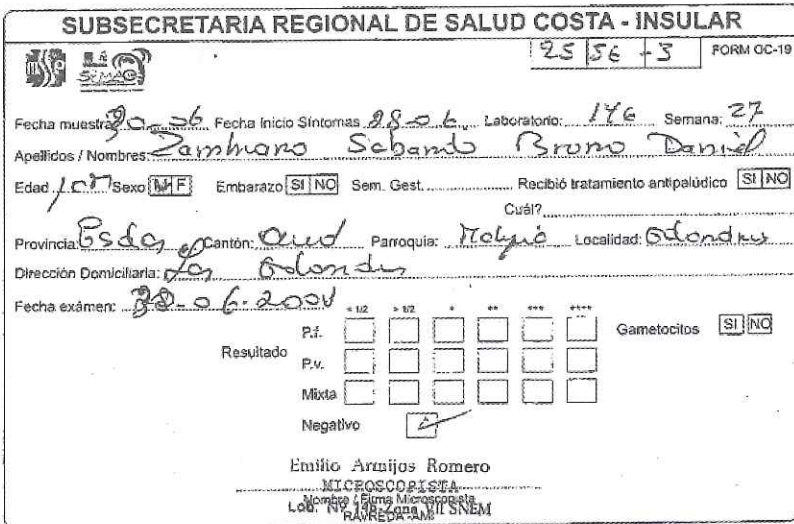 SUBSECRETARIA REGIONAL DE SALUD COSTA - INSULAR
MSP SNEM 25 56 +3 FORM OC-19
Fecha muestra: -06 Fecha Inicio Síntomas 28-06 Laboratorio: 146 Semana: 27
Apellidos / Nombres: Zambrano Sabando Bruno Daniel
Edad Sexo M F Embarazo SI NO Sem. Gest. Recibió tratamiento antipalúdico SI NO
Cuál?
Provincia: Esdas Cantón: Parroquia: Localidad:
Dirección Domiciliaria: Las
Fecha exámen: 28-06-200
< 1/2 > 1/2 * ** *** ****
P.f. Gametocitos SI NO
Resultado
P.v.
Mixta
Negativo
Emilio Armijos Romero
MICROSCOPISTA
Nombre / Firma Microscopista
Lab. Nº 146-Zona VII SNEM
RAVREDA-AMI